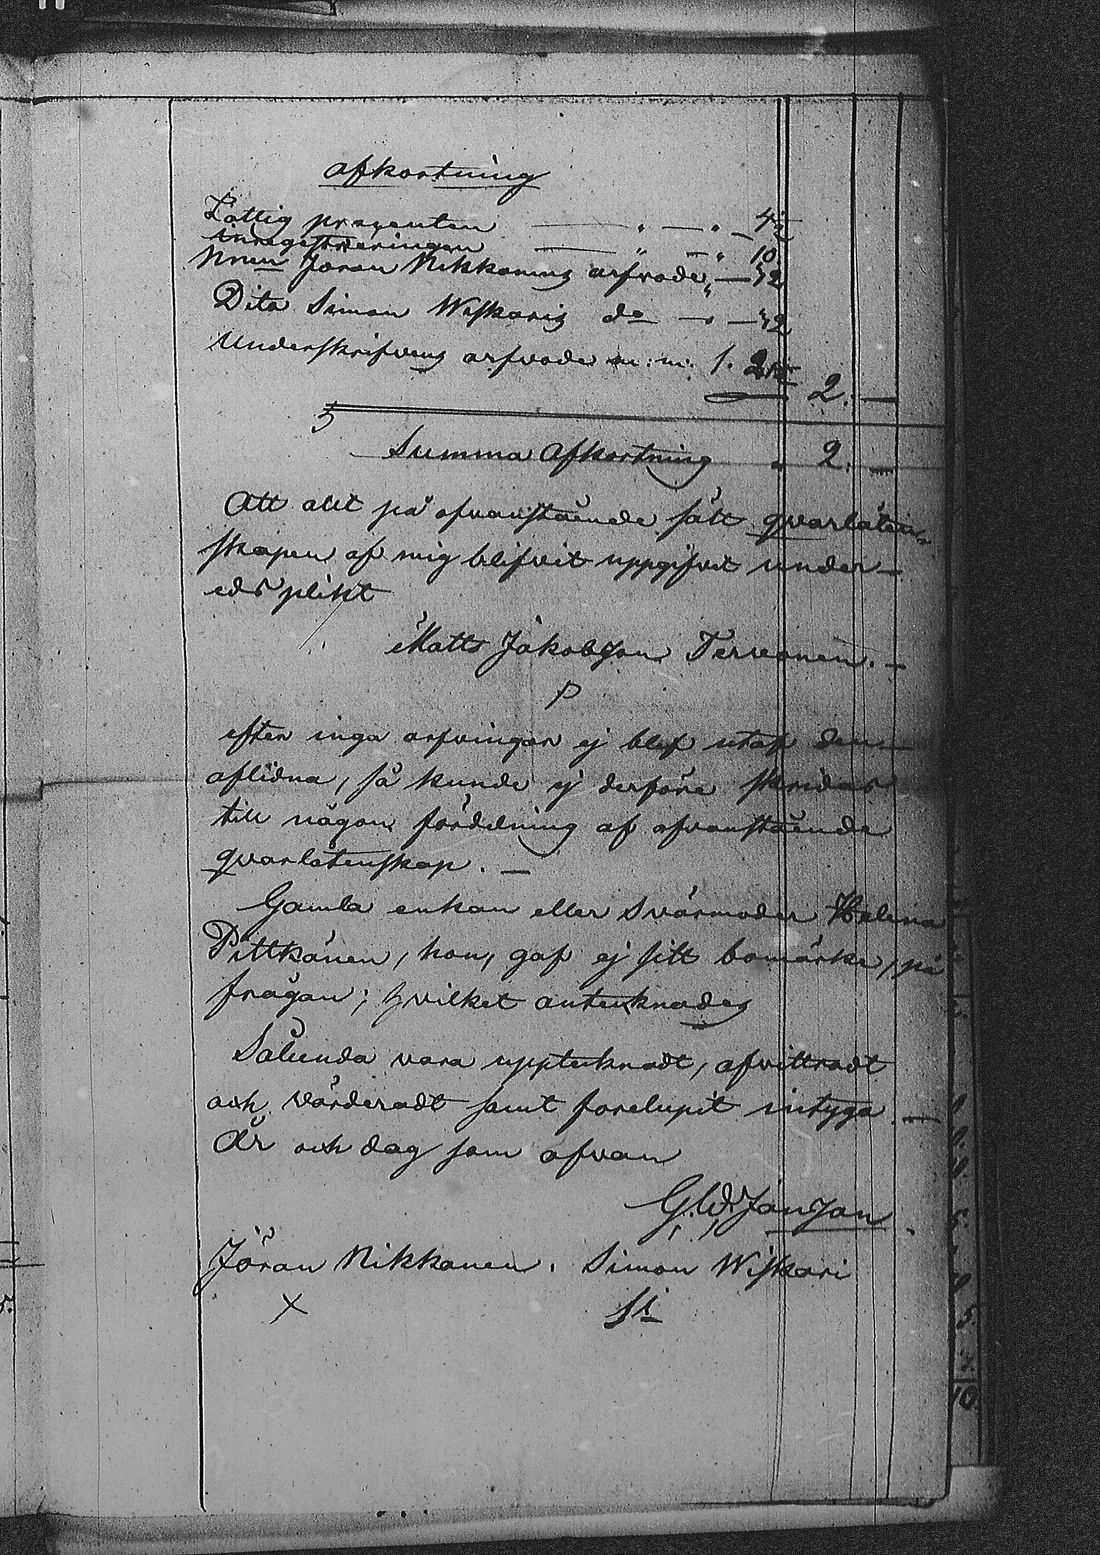 afkortning
Fattig prozenten — " — " — 42
inregistreringen — " — " 10
Nmn Jöran Nikkanens arfvode " — 12
Dito Simon Wiskaris do — " — 12
Underskrifvens arfvode m: m: 1. 2. —
Summa Afkortning " 2. —
Att allt på ofvanstående sätt qvarlåten-
skapen af mig blifvit uppgifvit under
eds plikt
Matts Jakobsson Tervonen. —
P
efter inga arfvingar ej blef utaf den
aflidna, så kunde ej derföre skridas
till någon fördelning af ofvanstående
qvarlåtenskap. —
Gamla enkan eller Svärmoder Helena
Pittkänen, hon, gaf ej sitt bomärke, på
frågan; hvilket antecknades
Sålunda vara upptecknadt, afvittradt
och värderadt samt förelupit intyga. —
År och dag som ofvan
G. W. Jansson.
Jöran Nikkanen. Simon Wiskari
X